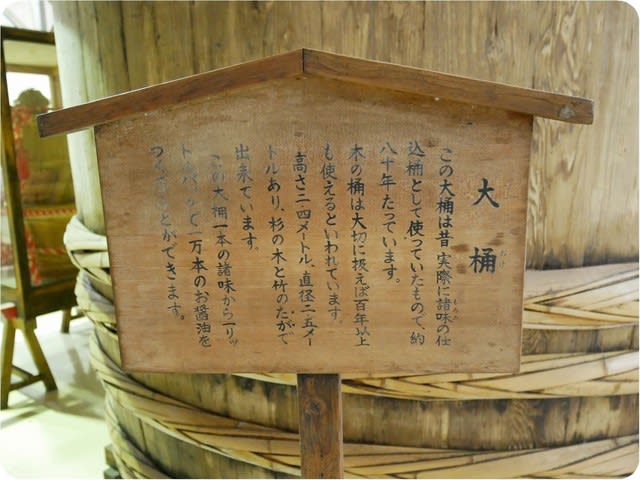 大桶
おけ
この大桶は昔実際に諸味の仕
もろみ
込桶として使っていたもので、約
八十年たっています。
木の桶は大切に扱えば百年以上
も使えるといわれています。
高さ二・四メートル、直径二・五メー
トルあり、杉の木と竹のたがで
出来ています。
この大桶一本の諸味から一リッ
トルパックで一万本のお醤油を
つくることができます。